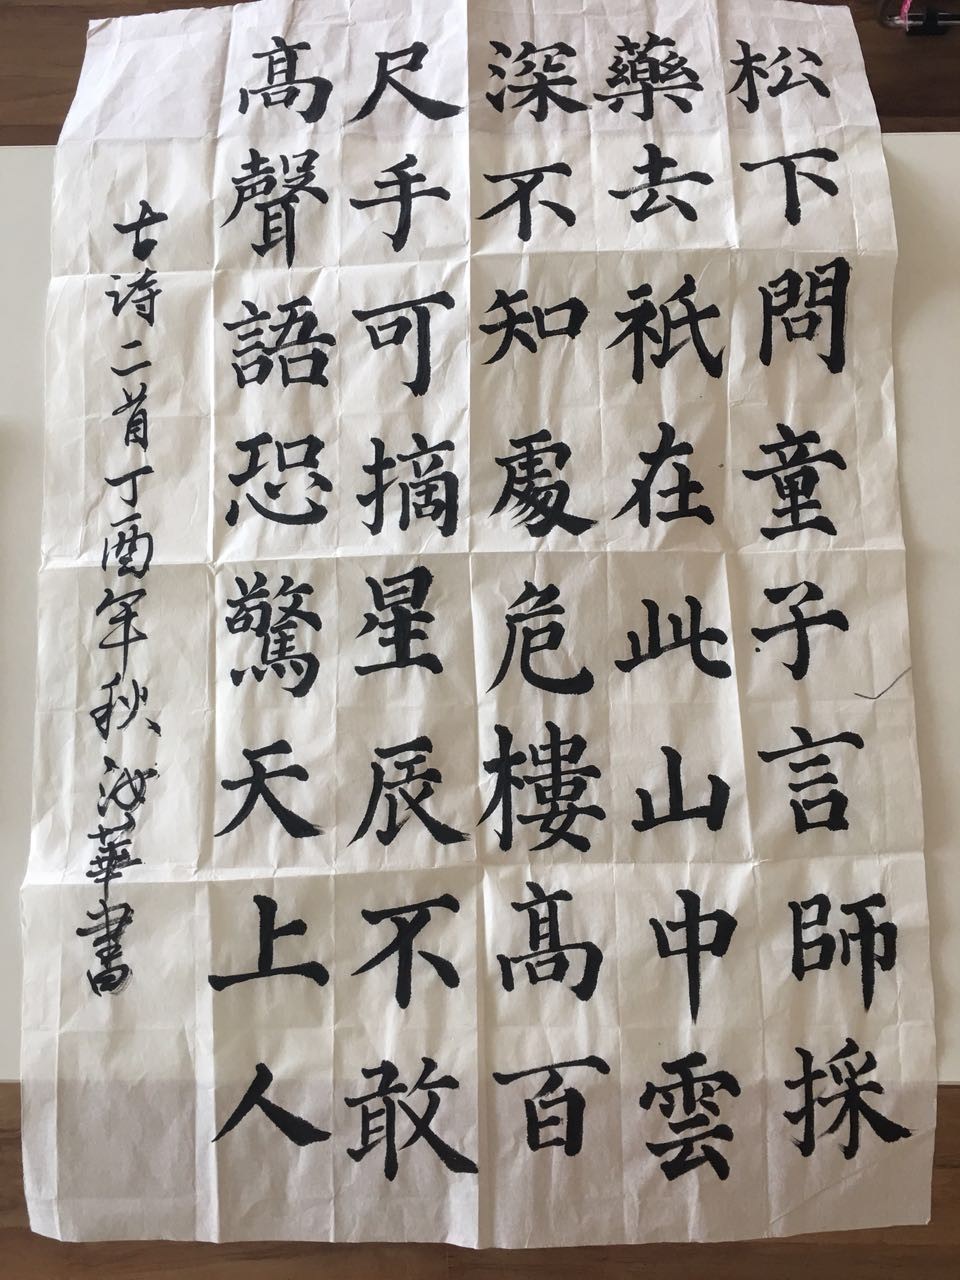 松下問童子言師採
藥去祇在此山中雲
深不知處危樓高百
尺手可摘星辰不敢
高聲語恐驚天上人
古诗二首丁酉年秋華書